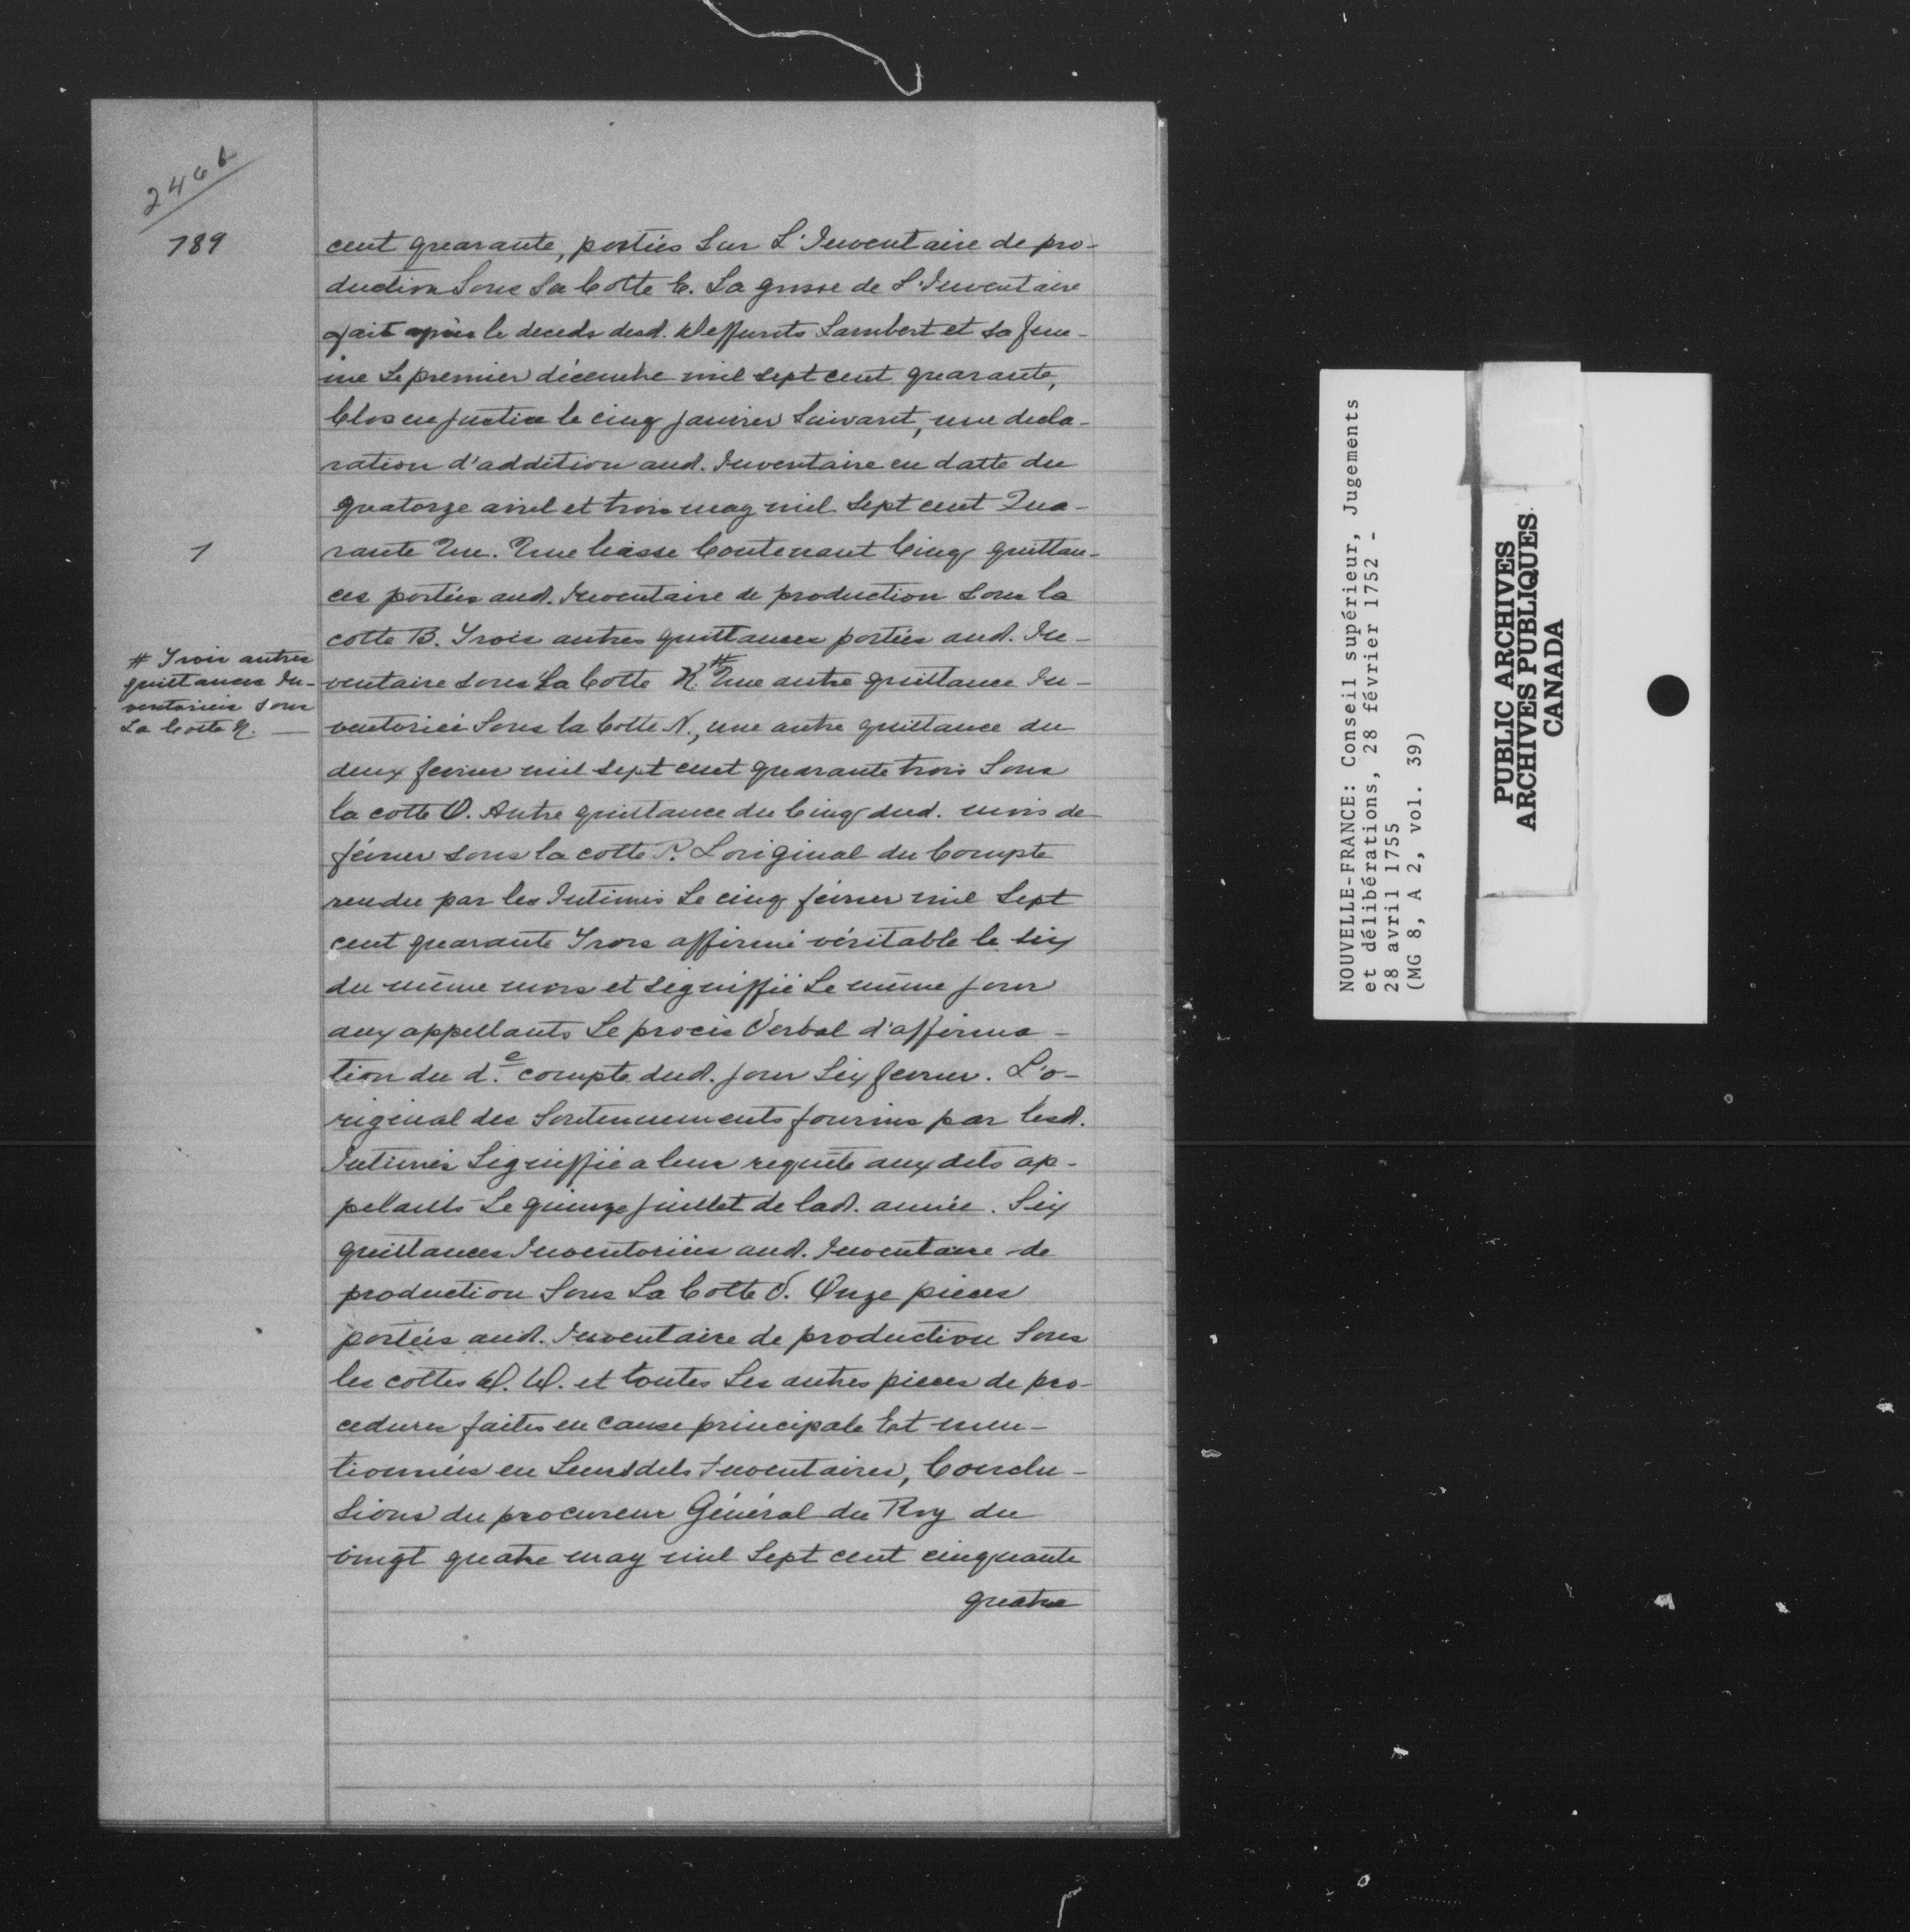 246 b
789
cent quarante, portées Sur L'Inventaire de pro-
duction Sous La Cotte C. La grosse de L'Inventaire
fait après le deceds desd. deffunts Lambert et sa fem-
me Le premier décembre mil sept cent quarante,
Clos en Justice le cinq janvier Suivant, une decla-
ration d'addition aud. Inventaire en datte du
quatorze avril et trois may mil Sept cent Qua-
1
rante Un. Une liasse Contenant Cinq quittan-
ces portées aud. Inventaire de production sous la
cotte B. Trois autres quittances portées aud. In-
ventaire sous La Cotte K. # Une autre quittance In-
# Trois autres
quittances In-
ventoriées sous
La Cotte
ventoriée Sous la Cotte N., une autre quittance du
deux fevrier mil sept cent quarante trois Sous
la cotte O. Autre quittance du Cinq dud. mois de
février sous la cotte P. L'original du Compte
rendu par les Intimés Le cinq février mil Sept
cent quarante Trois affirmé véritable le six
du même mois et signiffié Le même jour
aux appellants Le procès Verbal d'affirma-
tion du d.e compte dud. jour Six fevrier. L'o-
riginal des Soutennements fournis par lesd.
Intimés Signiffié a leur requête aux dits ap-
pellants Le quinze juillet de lad. année. Six
quittances Inventoriées aud. Inventaire de
production Sous La Cotte V. Onze pieces
portées aud. Inventaire de production Sous
les cottes et toutes Les autres pieces de pro-
cedures faites en cause principale Et men-
tionnées en Leursdits Inventaires, Conclu-
sions du procureur Général du Roy du
vingt quatre may mil Sept cent cinquante
quatre
NOUVELLE-FRANCE: Conseil supérieur, Jugements
et délibérations, 28 février 1752 -
28 avril 1755
(MG 8, A 2, vol. 39)
PUBLIC ARCHIVES
ARCHIVES PUBLIQUES
CANADA